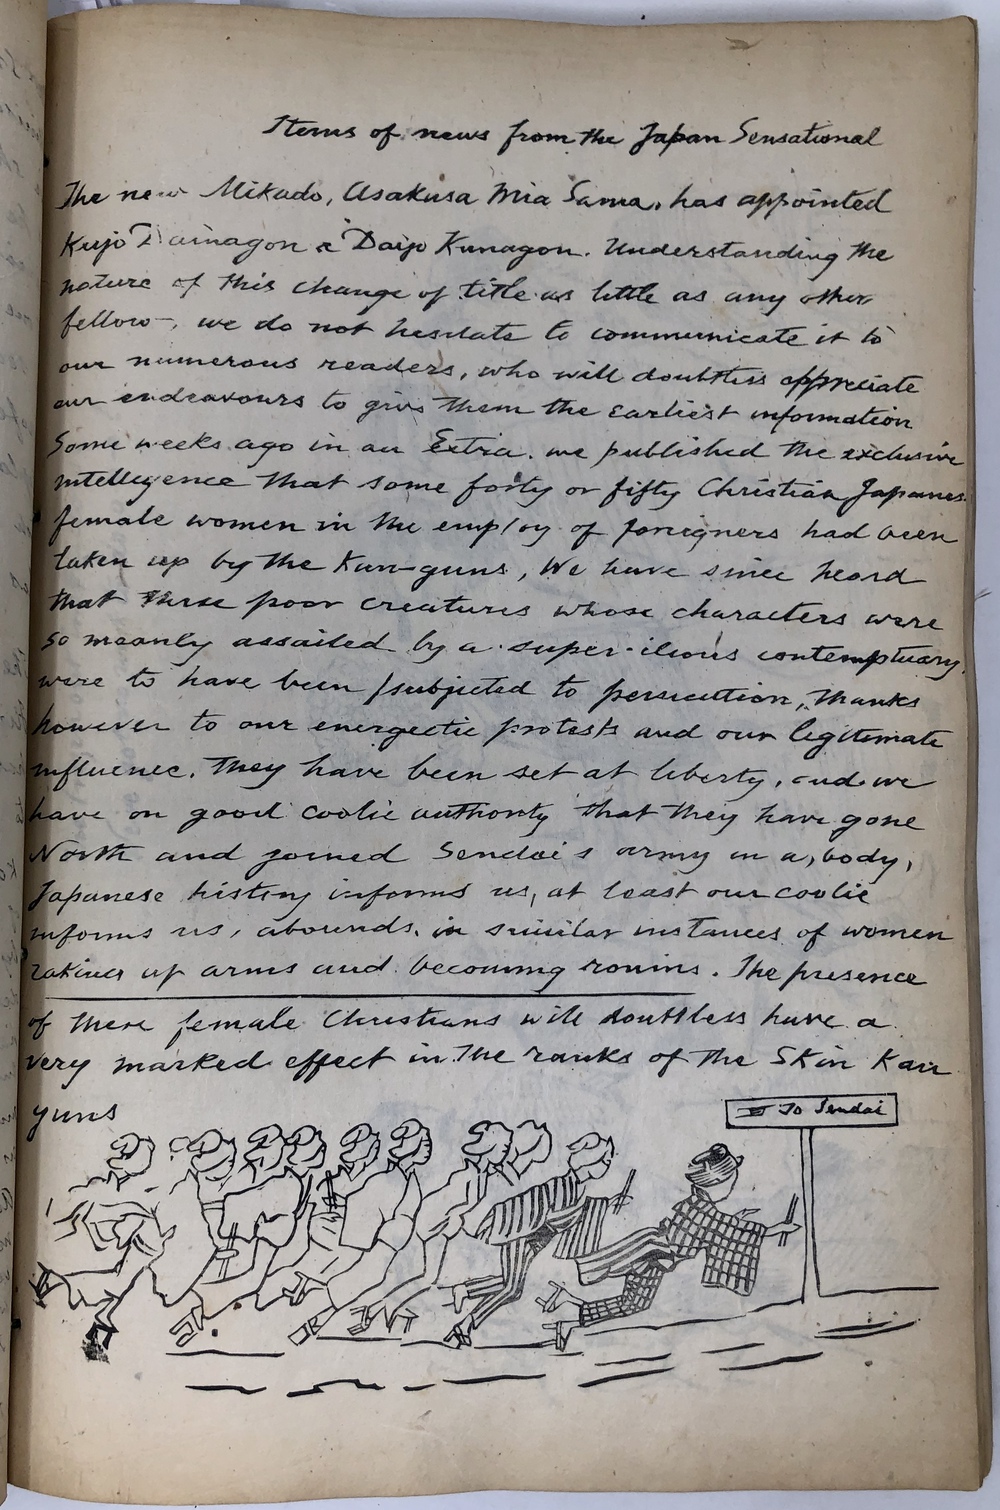 Items of news from the Japan Sensational
The new Mikado, Asakusa Mia Sama, has appointed
Kujo Dainagon a Daijo Kunagon. Understanding the
nature of this change of title as little as any other
fellow, we do not hesitate to communicate it to
our numerous readers, who will doubtless appreciate
our endeavours to give them the earliest information
Some weeks ago in an Extra. we published the exclusive
intelligence that some forty or fifty Christian Japanes
female women in the employ of foreigners had been
taken up by the Kan-guns, We have since heard
that these poor creatures whose characters were
so meanly assailed by a super-cilious contemptuary,
were to have been subjected to persecution, thanks
however to our energectic protests and our legitimate
influence. They have been set at liberty, and we
have on good coolie authority that they have gone
North and joined Sendai's army in a body,
Japanese history informs us, at least our coolie
informs us, abounds in similar instances of women
taking up arms and becoming ronins. The presence
of these female Christians will doubtless have a
very marked effect in the ranks of the Skin Kan
guns
To Sendai